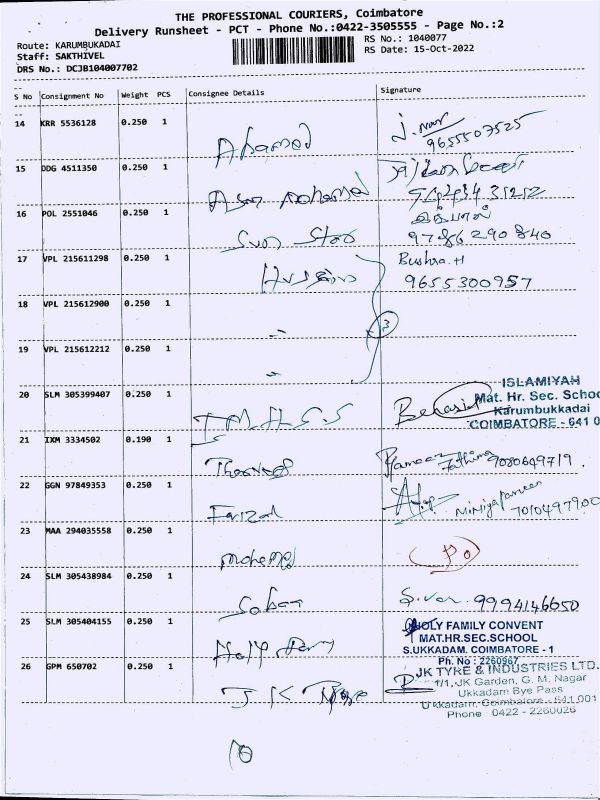 THE PROFESSIONAL COURIERS, Coimbatore
Delivery Runsheet - PCT - Phone No.:0422-3505555 - Page No.:2
Route: KARUMBUKADAI
Staff: SAKTHIVEL
DRS No.: DCJB104007702
RS No.: 1040077
RS Date: 15-Oct-2022
S No Consignment No Weight PCS Consignee Details Signature
14 KRR 5536128 0.250 1 Ahamed
9655507525
15 DDG 4511350 0.250 1
16 POL 2551046 0.250 1 Sun Star
9786290840
17 VPL 215611298 0.250 1 Hussain Bushra.H
9655300957
18 VPL 215612900 0.250 1 3
19 VPL 215612212 0.250 1
20 SLM 305399407 0.250 1 I.M.H.S.S
ISLAMIYAH
Mat. Hr. Sec. School
Karumbukkadai
COIMBATORE - 641 0
21 IXM 3334502 0.190 1 9080649719
22 GGN 97849353 0.250 1 7010497900
23 MAA 294035558 0.250 1
24 SLM 305438984 0.250 1 9994146650
25 SLM 305404155 0.250 1 Holy
HOLY FAMILY CONVENT
MAT.HR.SEC.SCHOOL
S.UKKADAM. COIMBATORE - 1
Ph. No : 2260967
26 GPM 650702 0.250 1 J K Tyre
JK TYRE & INDUSTRIES LTD.
1/1, JK Garden, G. M. Nagar
Ukkadam Bye Pass
Ukkadam, Coimbatore - 641 001
Phone 0422 - 2260026